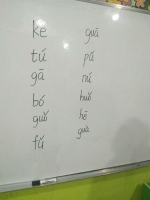 ké
tú
gā
bó
guǒ
fǔ
guā
pú
nú
huǒ
hē
guà